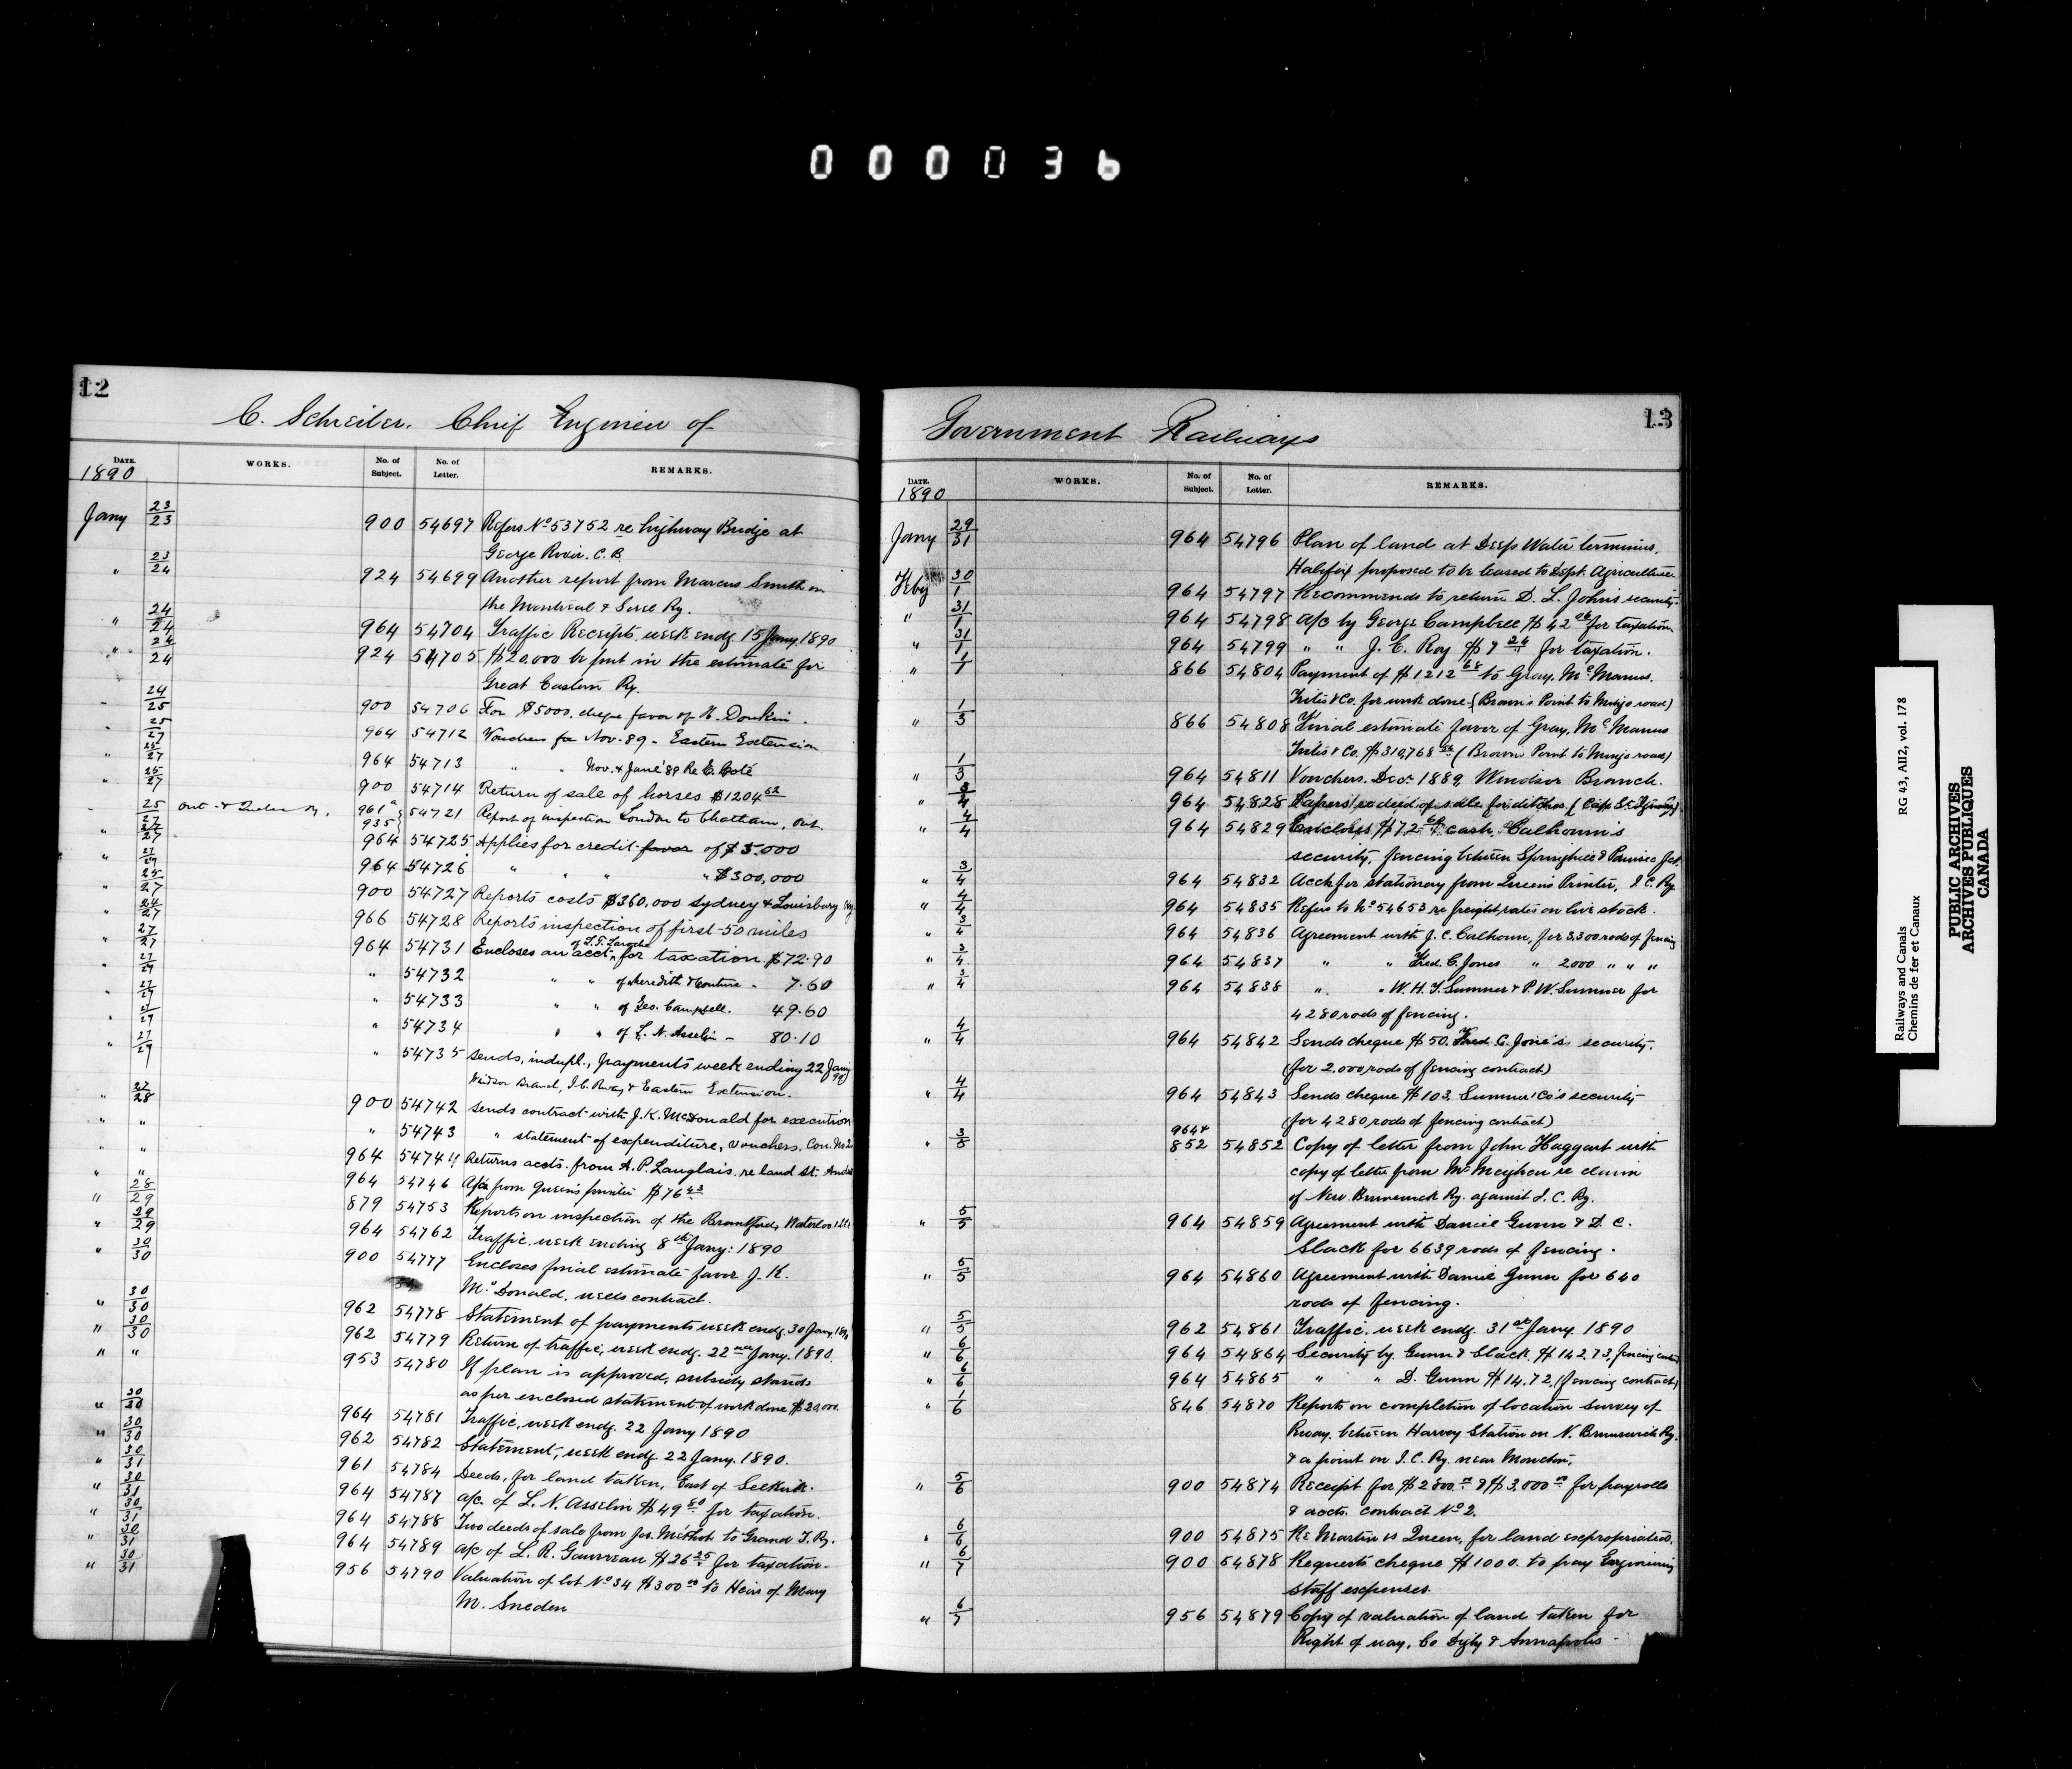 000036
12
C. Schreiber. Chief Engineer of
DATE. WORKS. No. of Subject. No. of Letter. REMARKS.
1890
Jany 23/23 900 54697 Refers No 53752 re highway Bridge at
George River. C.B.
" 23/24 924 54699 Another report from Marcus Smith on
the Montreal & Sorel Ry.
" 24/24 964 54704 Traffic Receipts, week endg 15 Jany 1890
" 24/24 924 54705 $20,000 be put in the estimate for
Great Eastern Ry.
" 24/25 900 54706 For $5000. cheque favor of H. Donkin.
" 25/27 964 54712 Vouchers for Nov. 89 - Eastern Extension
" 25/27 964 54713 " " Nov. & June '89 Re E. Coté
" 25/27 900 54714 Return of sale of horses $1204 52
" 25/27 Ont & Quebec Ry. 961 a 935 } 54721 Report of inspection London to Chatham, Ont.
" 27/27 964 54725 Applies for credit favor of $5.000
" 27/27 964 54726 " " " " $300,000
" 25/27 900 54727 Reports costs $360,000 Sydney & Louisburg Ry
" 24/27 966 54728 Reports inspection of first 50 miles
" 27/27 964 54731 Encloses an acct. of L.T. Laroche for taxation $72.90
" 27/27 " 54732 " " of Meredith & Couture - 7.60
" 27/27 " 54733 " " of Geo. Campbell. 49.60
" 27/27 " 54734 " " of L. N. Asselin - 80.10
" 27/27 " 54735 Sends, in dupl., payments week ending 22 Jany 90
Windsor Branch, I.C. Rway & Eastern Extension.
" 27/28 900 54742 Sends contract with J.K. McDonald for execution
" " " 54743 " statement of expenditure, vouchers. Con. No 2
" " 964 54744 Returns accts. from A.P. Langlais. re land St. André
" " 964 54746 A/ca from Queen's printer $76 43
" 28/29 879 54753 Reports on inspection of the Brantford, Waterloo &
" 29/29 964 54762 Traffic. week ending 8th Jany: 1890
" 30/30 900 54777 Encloses final estimate favor J. K.
McDonald. wells contract.
" 30/30 962 54778 Statement of payments week endg. 30 Jany. 1890
" 30/30 962 54779 Return of traffic, week endg. 22nd Jany. 1890.
" " 953 54780 If plan is approved, subsidy stands
as per enclosed statement of work done $20,000.
" 30/30 964 54781 Traffic, week endg. 22 Jany 1890
" 30/30 962 54782 Statement, week endg 22 Jany. 1890.
" 30/31 961 54784 Deeds, for land taken, East of Selkirk.
" 30/31 964 54787 a/c. of L. N. Asselin $49 80 for taxation.
" 30/31 964 54788 Two deeds of sale from Jos. Michot to Grand T. Ry.
" 30/31 964 54789 a/c of L. R. Gauvreau $26 25 for taxation.
" 30/31 956 54790 Valuation of lot No 34 $300 00 to Heirs of Mary
M. Sneden
13
Government Railways
DATE. WORKS. No. of Subject. No. of Letter. REMARKS.
1890
Jany 29/31 964 54796 Plan of land at Deep Water terminus,
Halifax proposed to be leased to Dept. Agriculture
Feby 30/1 964 54797 Recommends to return D. L. John's security.
" 31/1 964 54798 a/c by George Campbell $42 for taxation.
" 31/1 964 54799 " " J. E. Roy $7 24 for taxation.
" 1/1 866 54804 Payment of $1212 68 to Gray, McManus.
Trites & Co. for work done (Brown's Point to Mingo road)
" 1/3 866 54808 Final estimate favor of Gray, McManus
Trites & Co. $310,768 (Browns Point to Mingo road)
" 1/3 964 54811 Vouchers. Decr 1889, Windsor Branch.
" 3/4 964 54828 Papers re deed of sale for ditches. (Cap St Ignace)
" 4/4 964 54829 Encloses $72 cash, Calhoun's
security, fencing between Springhill & Painsec Jct.
" 3/4 964 54832 Acct for stationery from Queen's Printer, I.C. Ry
" 4/4 964 54835 Refers to No 54653 re freight rates on live stock.
" 3/4 964 54836 Agreement with J. C. Calhoun, for 3300 rods of fencing
" 3/4 964 54837 " " Fred. C. Jones " 2000 " " "
" 3/4 964 54838 " " W.H.T. Sumner & P.W. Sumner for
4280 rods of fencing.
" 4/4 964 54842 Sends cheque $50. Fred C. Jone's security.
(for 2.000 rods of fencing contract)
" 4/4 964 54843 Sends cheque $103. Sumner & Co's security
(for 4280 rods of fencing contract)
" 3/5 964 & 852 54852 Copy of letter from John Haggart with
copy of letter from Mr Meighen re claim
of New Brunswick Ry. against I.C. Ry.
" 5/5 964 54859 Agreement with Daniel Gunn & D. C.
Slack for 6639 rods of fencing.
" 5/5 964 54860 Agreement with Daniel Gunn for 640
rods of fencing.
" 5/5 962 54861 Traffic, week endg. 31st Jany. 1890
" 6/6 964 54864 Security by Gunn & Slack. $142.73, fencing contr
" 6/6 964 54865 " " D. Gunn $14.72, (fencing contract)
" 1/6 846 54870 Reports on completion of location survey of
Rway. between Harvey Station on N. Brunswick Ry.
& a point on I.C. Ry. near Moncton,
" 5/6 900 54874 Receipt for $2800.00 & $3.000 00 for payrolls
& accts. contract No 2.
" 6/6 900 54875 Re Martin vs Queen, for land expropriated.
" 6/7 900 54878 Requests cheque $1000. to pay Engineering
staff expenses.
" 6/7 956 54879 Copy of valuation of land taken for
Right of way, Co Digby & Annapolis -
Railways and Canals RG 43, AII2, vol. 178
Chemins de fer et Canaux
PUBLIC ARCHIVES
ARCHIVES PUBLIQUES
CANADA